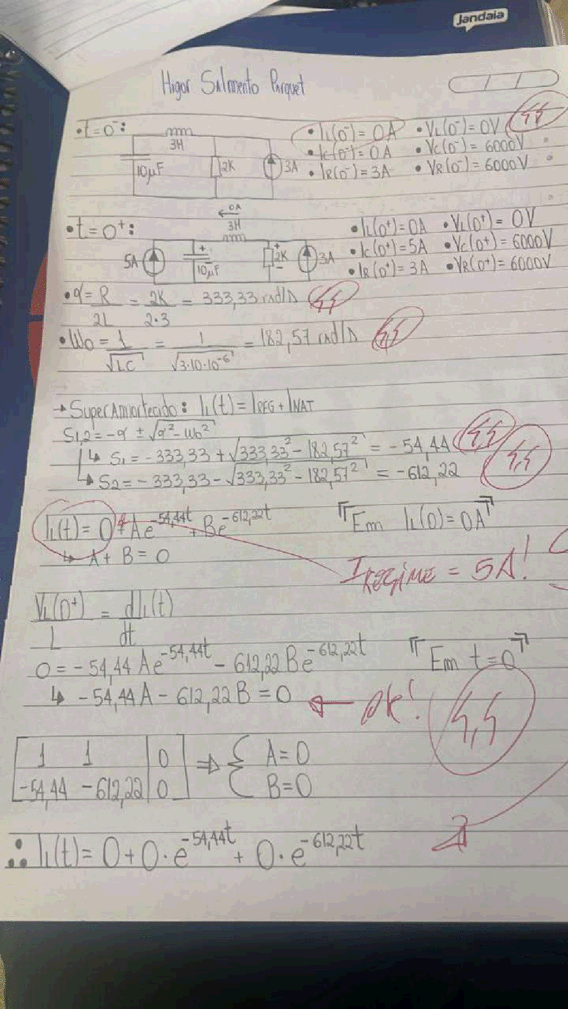 Jandaia
Higor Salmento Parquet
• t=0⁻:
3H
10μF
2K
3A
• IL(0⁻) = 0A • VL(0⁻) = 0V
• Ic(0⁻) = 0A • Vc(0⁻) = 6000V
• IR(0⁻) = 3A • VR(0⁻) = 6000V
• t=0⁺:
0A
3H
5A
10μF
2K
3A
• IL(0⁺) = 0A • VL(0⁺) = 0V
• Ic(0⁺) = 5A • Vc(0⁺) = 6000V
• IR(0⁺) = 3A • VR(0⁺) = 6000V
• α = R/2L = 2K/2.3 = 333,33 rad/s
• Wo = 1/√LC = 1/√3·10·10⁻⁶ = 182,57 rad/s
→ SuperAmortecido: IL(t) = IREG + INAT
S1,2 = -α ± √α² - Wo²
↳ S1 = -333,33 + √333,33² - 182,57² = -54,44
↳ S2 = -333,33 - √333,33² - 182,57² = -612,22
IL(t) = 0 + Ae^-54,44t + Be^-612,22t "Em IL(0) = 0A"
↳ A + B = 0
IREGIME = 5A!
VL(0⁺)/L = dIL(t)/dt
0 = -54,44 Ae^-54,44t - 612,22 Be^-612,22t "Em t=0"
↳ -54,44A - 612,22B = 0 ← OK!
1 1 | 0
-54,44 -612,22 | 0
⇒ { A = 0
B = 0
∴ IL(t) = 0 + 0·e^-54,44t + 0·e^-612,22t